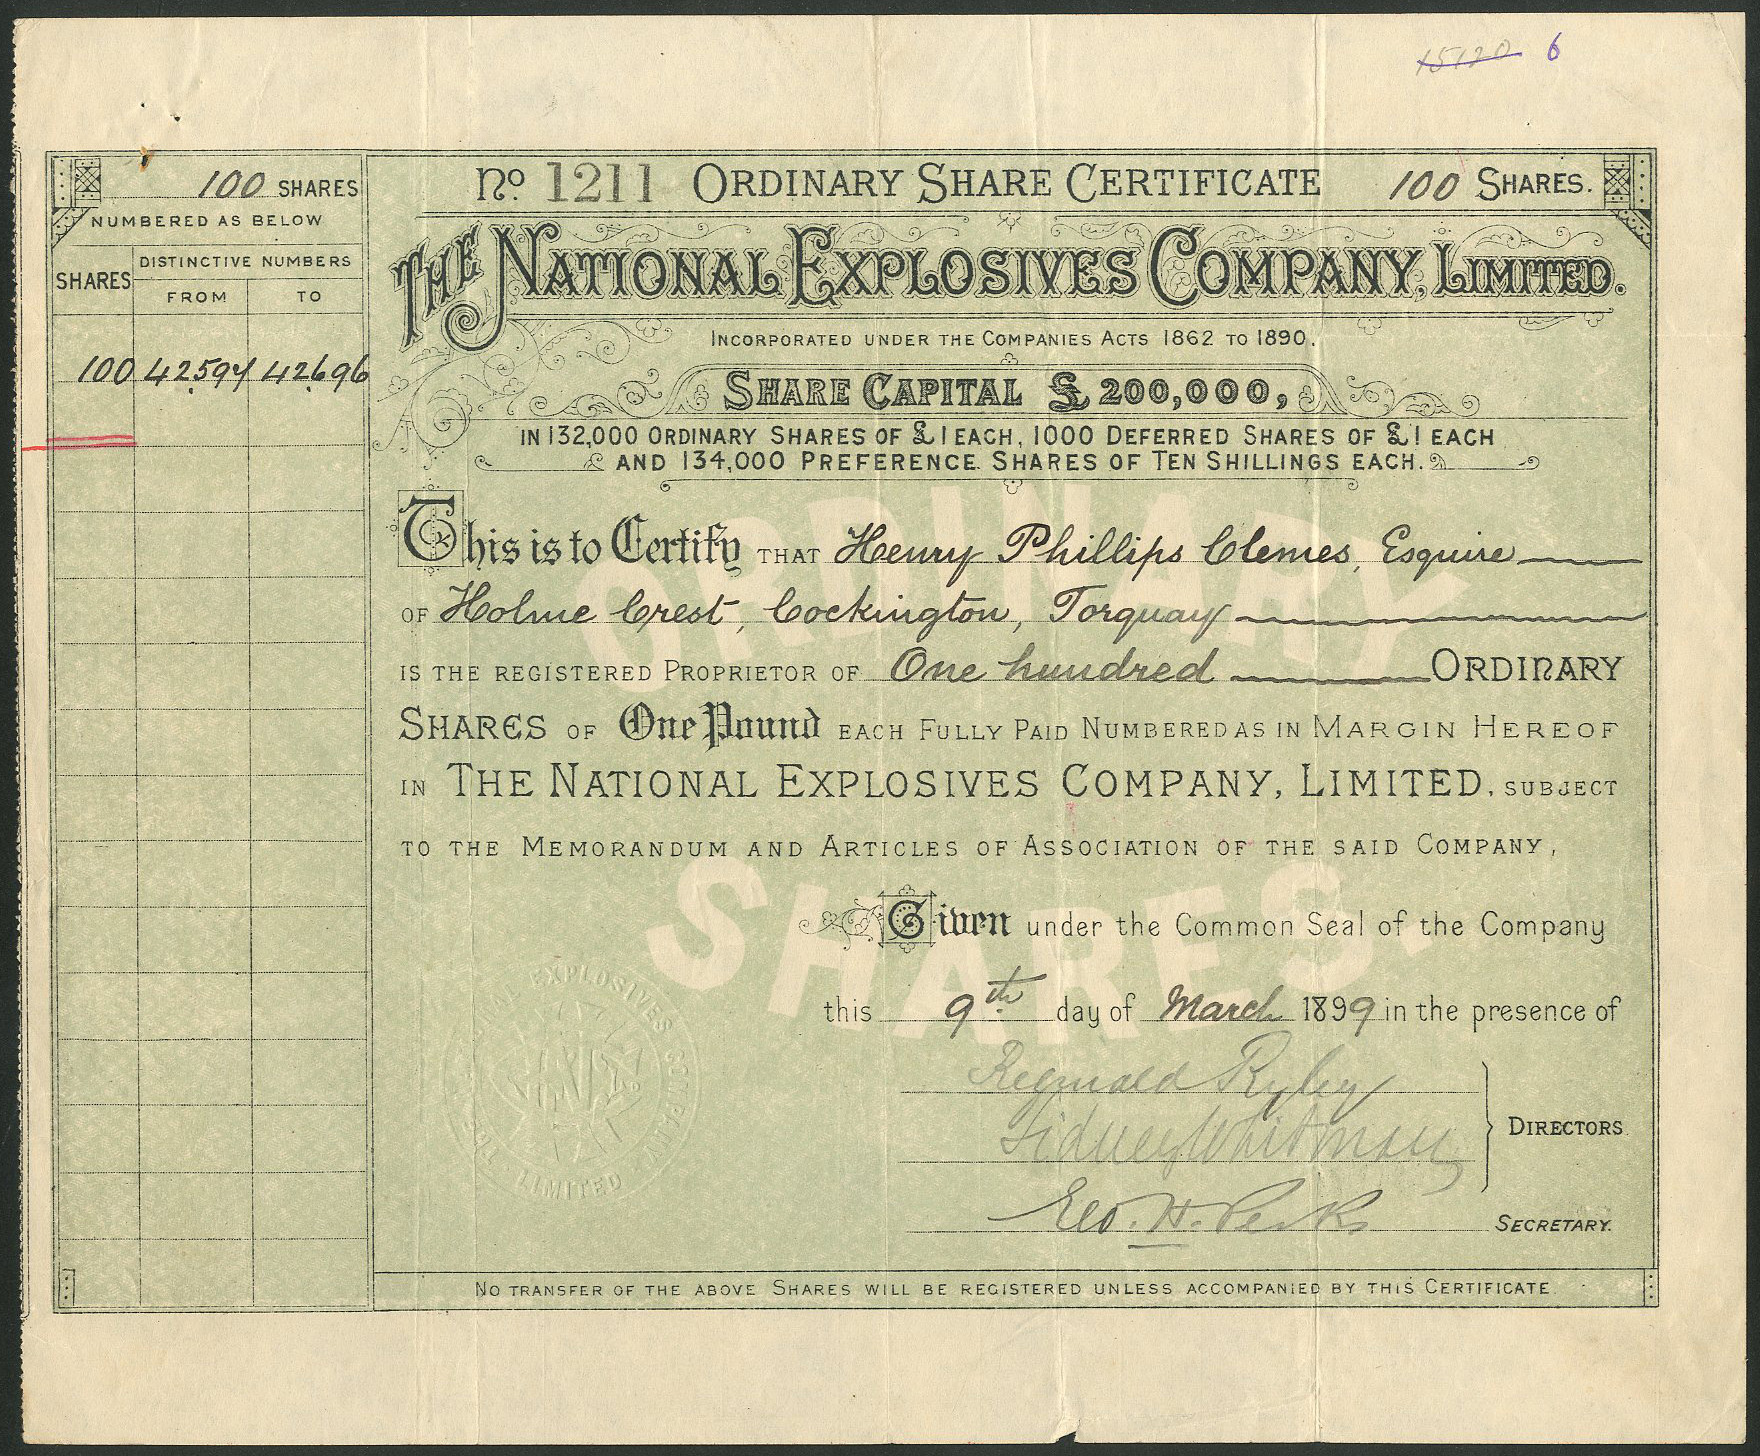 15120 6
100 SHARES
NUMBERED AS BELOW
SHARES
DISTINCTIVE NUMBERS
FROM TO
100 42597 42696
No. 1211 ORDINARY SHARE CERTIFICATE 100 SHARES.
THE NATIONAL EXPLOSIVES COMPANY, LIMITED.
INCORPORATED UNDER THE COMPANIES ACTS 1862 TO 1890.
SHARE CAPITAL £200,000,
IN 132,000 ORDINARY SHARES OF £1 EACH, 1000 DEFERRED SHARES OF £1 EACH
AND 134,000 PREFERENCE SHARES OF TEN SHILLINGS EACH.
ORDINARY
SHARES.
This is to Certify THAT Henry Phillips Clemes, Esquire
OF Holme Crest, Cockington, Torquay
IS THE REGISTERED PROPRIETOR OF One hundred ORDINARY
SHARES OF One Pound EACH FULLY PAID NUMBERED AS IN MARGIN HEREOF
IN THE NATIONAL EXPLOSIVES COMPANY, LIMITED, SUBJECT
TO THE MEMORANDUM AND ARTICLES OF ASSOCIATION OF THE SAID COMPANY,
Given under the Common Seal of the Company
this 9th day of March 1899 in the presence of
Reginald Ryley
Sidney Whitman
DIRECTORS
Geo. H. Perks
SECRETARY.
EXPLOSIVES COMPANY LIMITED
NO TRANSFER OF THE ABOVE SHARES WILL BE REGISTERED UNLESS ACCOMPANIED BY THIS CERTIFICATE.